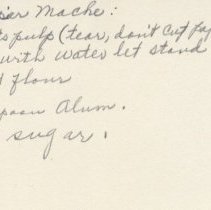 per Mache:
ts pulp (tear, don't cut pap
urth water let stand
d flour
poon Alum.
sugar.